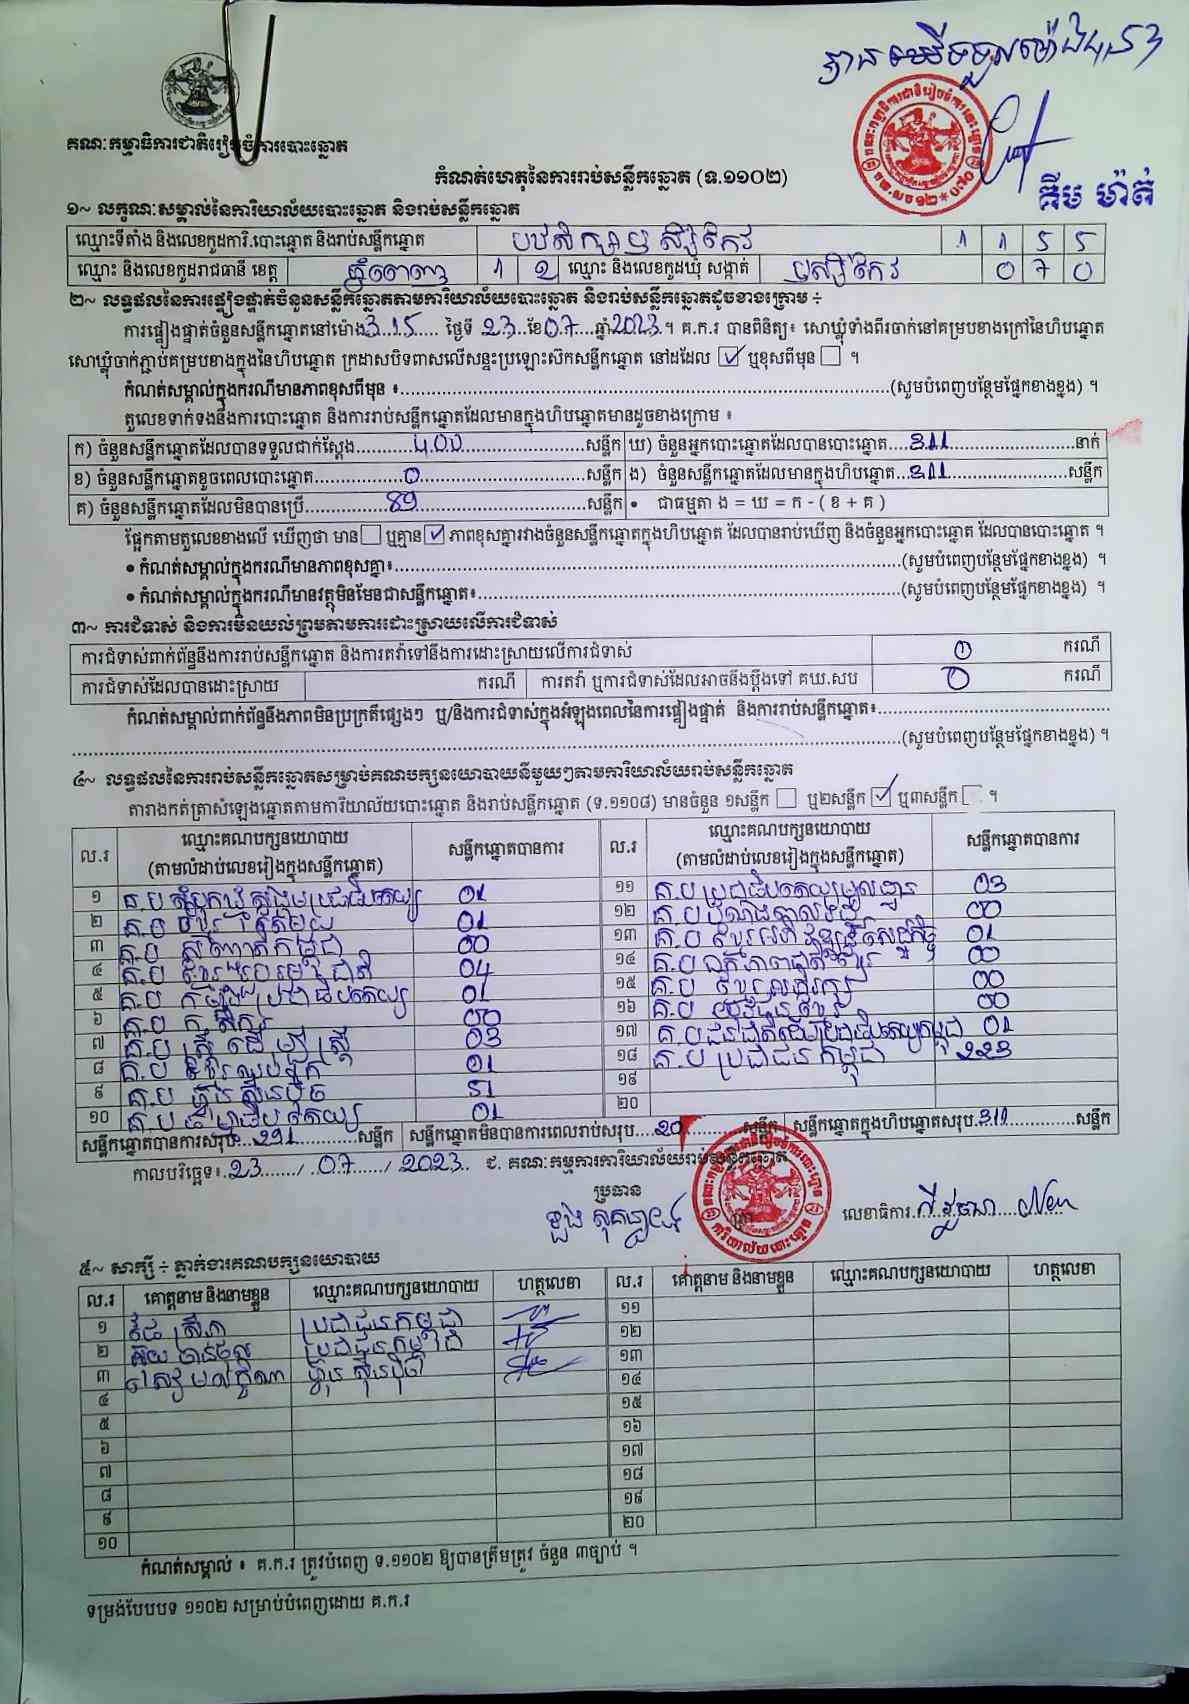 បានឃើញទទួលម៉ោង 4,53
គណៈកម្មាធិការជាតិរៀបចំការបោះឆ្នោត
គីម ម៉ាត់
កំណត់ហេតុនៃការរាប់សន្លឹកឆ្នោត (ទ.១១០២)
១~ លក្ខណៈសម្គាល់នៃការិយាល័យបោះឆ្នោត និងរាប់សន្លឹកឆ្នោត
ឈ្មោះទីតាំង និងលេខកូដការិ.បោះឆ្នោត និងរាប់សន្លឹកឆ្នោត 1 1 5 5
ឈ្មោះ និងលេខកូដរាជធានី ខេត្ត ភ្នំពេញ 1 2 ឈ្មោះ និងលេខកូដឃុំ សង្កាត់ ឫស្សីកែវ 0 7 0
២~ លទ្ធផលនៃការផ្ទៀងផ្ទាត់ចំនួនសន្លឹកឆ្នោតតាមការិយាល័យបោះឆ្នោត និងរាប់សន្លឹកឆ្នោតដូចខាងក្រោម ÷
ការផ្ទៀងផ្ទាត់ចំនួនសន្លឹកឆ្នោតនៅម៉ោង 3.15 ថ្ងៃទី 23 ខែ 07 ឆ្នាំ 2023 ។ គ.ក.រ បានពិនិត្យ៖ សោឃ្លុំទាំងពីរចាក់នៅគម្របខាងក្រៅនៃហិបឆ្នោត
សោឃ្លុំចាក់ភ្ជាប់គម្របខាងក្នុងនៃហិបឆ្នោត ក្រដាសបិទពាសលើសន្ទះប្រឡោះសឹកសន្លឹកឆ្នោត នៅដដែល ☑ ឬខុសពីមុន ☐ ។
កំណត់សម្គាល់ក្នុងករណីមានភាពខុសពីមុន ៖ (សូមបំពេញបន្ថែមផ្នែកខាងខ្នង) ។
តួលេខទាក់ទងនឹងការបោះឆ្នោត និងការរាប់សន្លឹកឆ្នោតដែលមានក្នុងហិបឆ្នោតមានដូចខាងក្រោម ៖
ក) ចំនួនសន្លឹកឆ្នោតដែលបានទទួលជាក់ស្តែង 400 សន្លឹក ឃ) ចំនួនអ្នកបោះឆ្នោតដែលបានបោះឆ្នោត 311 នាក់
ខ) ចំនួនសន្លឹកឆ្នោតខូចពេលបោះឆ្នោត 0 សន្លឹក ង) ចំនួនសន្លឹកឆ្នោតដែលមានក្នុងហិបឆ្នោត 311 សន្លឹក
គ) ចំនួនសន្លឹកឆ្នោតដែលមិនបានប្រើ 89 សន្លឹក • ជាធម្មតា ង = ឃ = ក - ( ខ + គ )
ផ្អែកតាមតួលេខខាងលើ ឃើញថា មាន ☐ ឬគ្មាន ☑ ភាពខុសគ្នារវាងចំនួនសន្លឹកឆ្នោតក្នុងហិបឆ្នោត ដែលបានរាប់ឃើញ និងចំនួនអ្នកបោះឆ្នោត ដែលបានបោះឆ្នោត ។
• កំណត់សម្គាល់ក្នុងករណីមានភាពខុសគ្នា៖ (សូមបំពេញបន្ថែមផ្នែកខាងខ្នង) ។
• កំណត់សម្គាល់ក្នុងករណីមានវត្ថុមិនមែនជាសន្លឹកឆ្នោត៖ (សូមបំពេញបន្ថែមផ្នែកខាងខ្នង) ។
៣~ ការជំទាស់ និងការមិនយល់ព្រមតាមការដោះស្រាយលើការជំទាស់
ការជំទាស់ពាក់ព័ន្ធនឹងការរាប់សន្លឹកឆ្នោត និងការតវ៉ាទៅនឹងការដោះស្រាយលើការជំទាស់ 0 ករណី
ការជំទាស់ដែលបានដោះស្រាយ ករណី ការតវ៉ា ឬការជំទាស់ដែលអាចនឹងប្តឹងទៅ គឃ.សប 0 ករណី
កំណត់សម្គាល់ពាក់ព័ន្ធនឹងភាពមិនប្រក្រតីផ្សេងៗ ឬ/និងការជំទាស់ក្នុងអំឡុងពេលនៃការផ្ទៀងផ្ទាត់ និងការរាប់សន្លឹកឆ្នោត៖
(សូមបំពេញបន្ថែមផ្នែកខាងខ្នង) ។
៤~ លទ្ធផលនៃការរាប់សន្លឹកឆ្នោតសម្រាប់គណបក្សនយោបាយនីមួយៗតាមការិយាល័យរាប់សន្លឹកឆ្នោត
តារាងកត់ត្រាសំឡេងឆ្នោតតាមការិយាល័យបោះឆ្នោត និងរាប់សន្លឹកឆ្នោត (ទ.១១០៨) មានចំនួន ១សន្លឹក ☐ ឬ២សន្លឹក ☑ ឬ៣សន្លឹក ☐ ។
ល.រ ឈ្មោះគណបក្សនយោបាយ (តាមលំដាប់លេខរៀងក្នុងសន្លឹកឆ្នោត) សន្លឹកឆ្នោតបានការ ល.រ ឈ្មោះគណបក្សនយោបាយ (តាមលំដាប់លេខរៀងក្នុងសន្លឹកឆ្នោត) សន្លឹកឆ្នោតបានការ
១ គ.ប សំបុកឃ្មុំសង្គមប្រជាធិបតេយ្យ 01 ១១ គ.ប ប្រជាធិបតេយ្យមូលដ្ឋាន 03
២ គ.ប ខ្មែរតែមួយ 01 ១២ គ.ប 00
៣ គ.ប កម្ពុជា 00 ១៣ គ.ប ខ្មែរអភិវឌ្ឍន៍សេដ្ឋកិច្ច 01
៤ គ.ប ខ្មែររួបរួមជាតិ 04 ១៤ គ.ប ឯកភាពជាតិខ្មែរ 00
៥ គ.ប កម្លាំងប្រជាធិបតេយ្យ 01 ១៥ គ.ប ខ្មែរ 00
៦ គ.ប កសិករ 00 ១៦ គ.ប យុវជនខ្មែរ 00
៧ គ.ប ស្ត្រីដើម្បីស្ត្រី 03 ១៧ គ.ប ជនជាតិដើមប្រជាធិបតេយ្យកម្ពុជា 01
៨ គ.ប ខ្មែរឈប់ក្រ 01 ១៨ គ.ប ប្រជាជនកម្ពុជា 223
៩ គ.ប ហ្វ៊ុនស៊ិនប៉ិច 51 ១៩
១០ គ.ប ធម្មាធិបតេយ្យ 01 ២០
សន្លឹកឆ្នោតបានការសរុប 291 សន្លឹក សន្លឹកឆ្នោតមិនបានការពេលរាប់សរុប 20 សន្លឹក សន្លឹកឆ្នោតក្នុងហិបឆ្នោតសរុប 311 សន្លឹក
កាលបរិច្ឆេទ៖ 23 / 07 / 2023 ជ. គណៈកម្មការការិយាល័យរាប់សន្លឹកឆ្នោត
ប្រធាន
លេខាធិការ
៥~ សាក្សី ÷ ភ្នាក់ងារគណបក្សនយោបាយ
ល.រ គោត្តនាម និងនាមខ្លួន ឈ្មោះគណបក្សនយោបាយ ហត្ថលេខា ល.រ គោត្តនាម និងនាមខ្លួន ឈ្មោះគណបក្សនយោបាយ ហត្ថលេខា
១ ប្រជាជនកម្ពុជា ១១
២ ប្រជាជនកម្ពុជា ១២
៣ ហ្វ៊ុនស៊ិនប៉ិច ១៣
៤ ១៤
៥ ១៥
៦ ១៦
៧ ១៧
៨ ១៨
៩ ១៩
១០ ២០
កំណត់សម្គាល់ ៖ គ.ក.រ ត្រូវបំពេញ ទ.១១០២ ឱ្យបានត្រឹមត្រូវ ចំនួន ៣ច្បាប់ ។
ទម្រង់បែបបទ ១១០២ សម្រាប់បំពេញដោយ គ.ក.រ